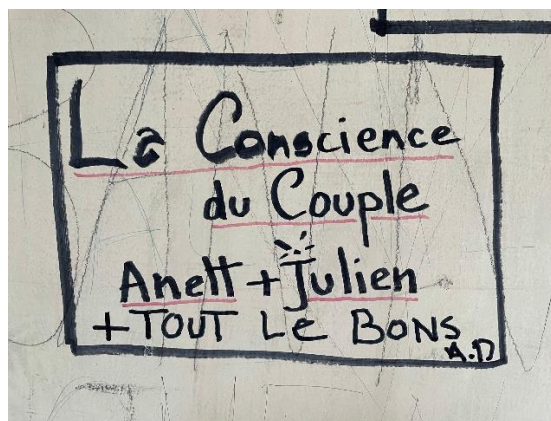 La Conscience
du Couple
Anett + Julien
+ TOUT LE BONS
A.D